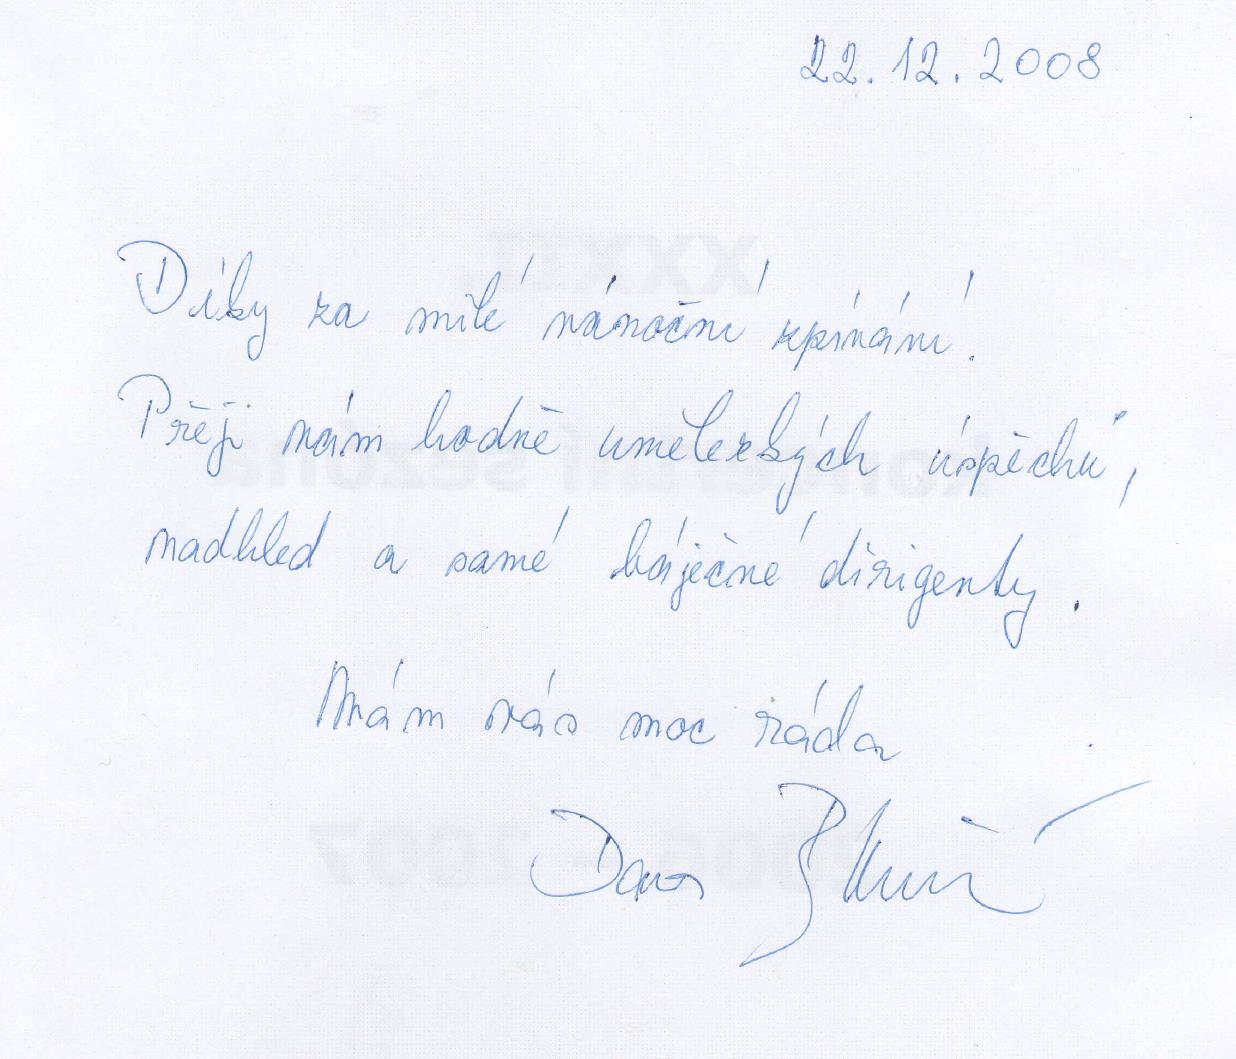 22.12.2008
Díky za milé vánoční zpívání!
Přeji vám hodně umeleckých úspěchů,
nadhled a samé báječné dirigenty.
Mám vás moc ráda
Dana